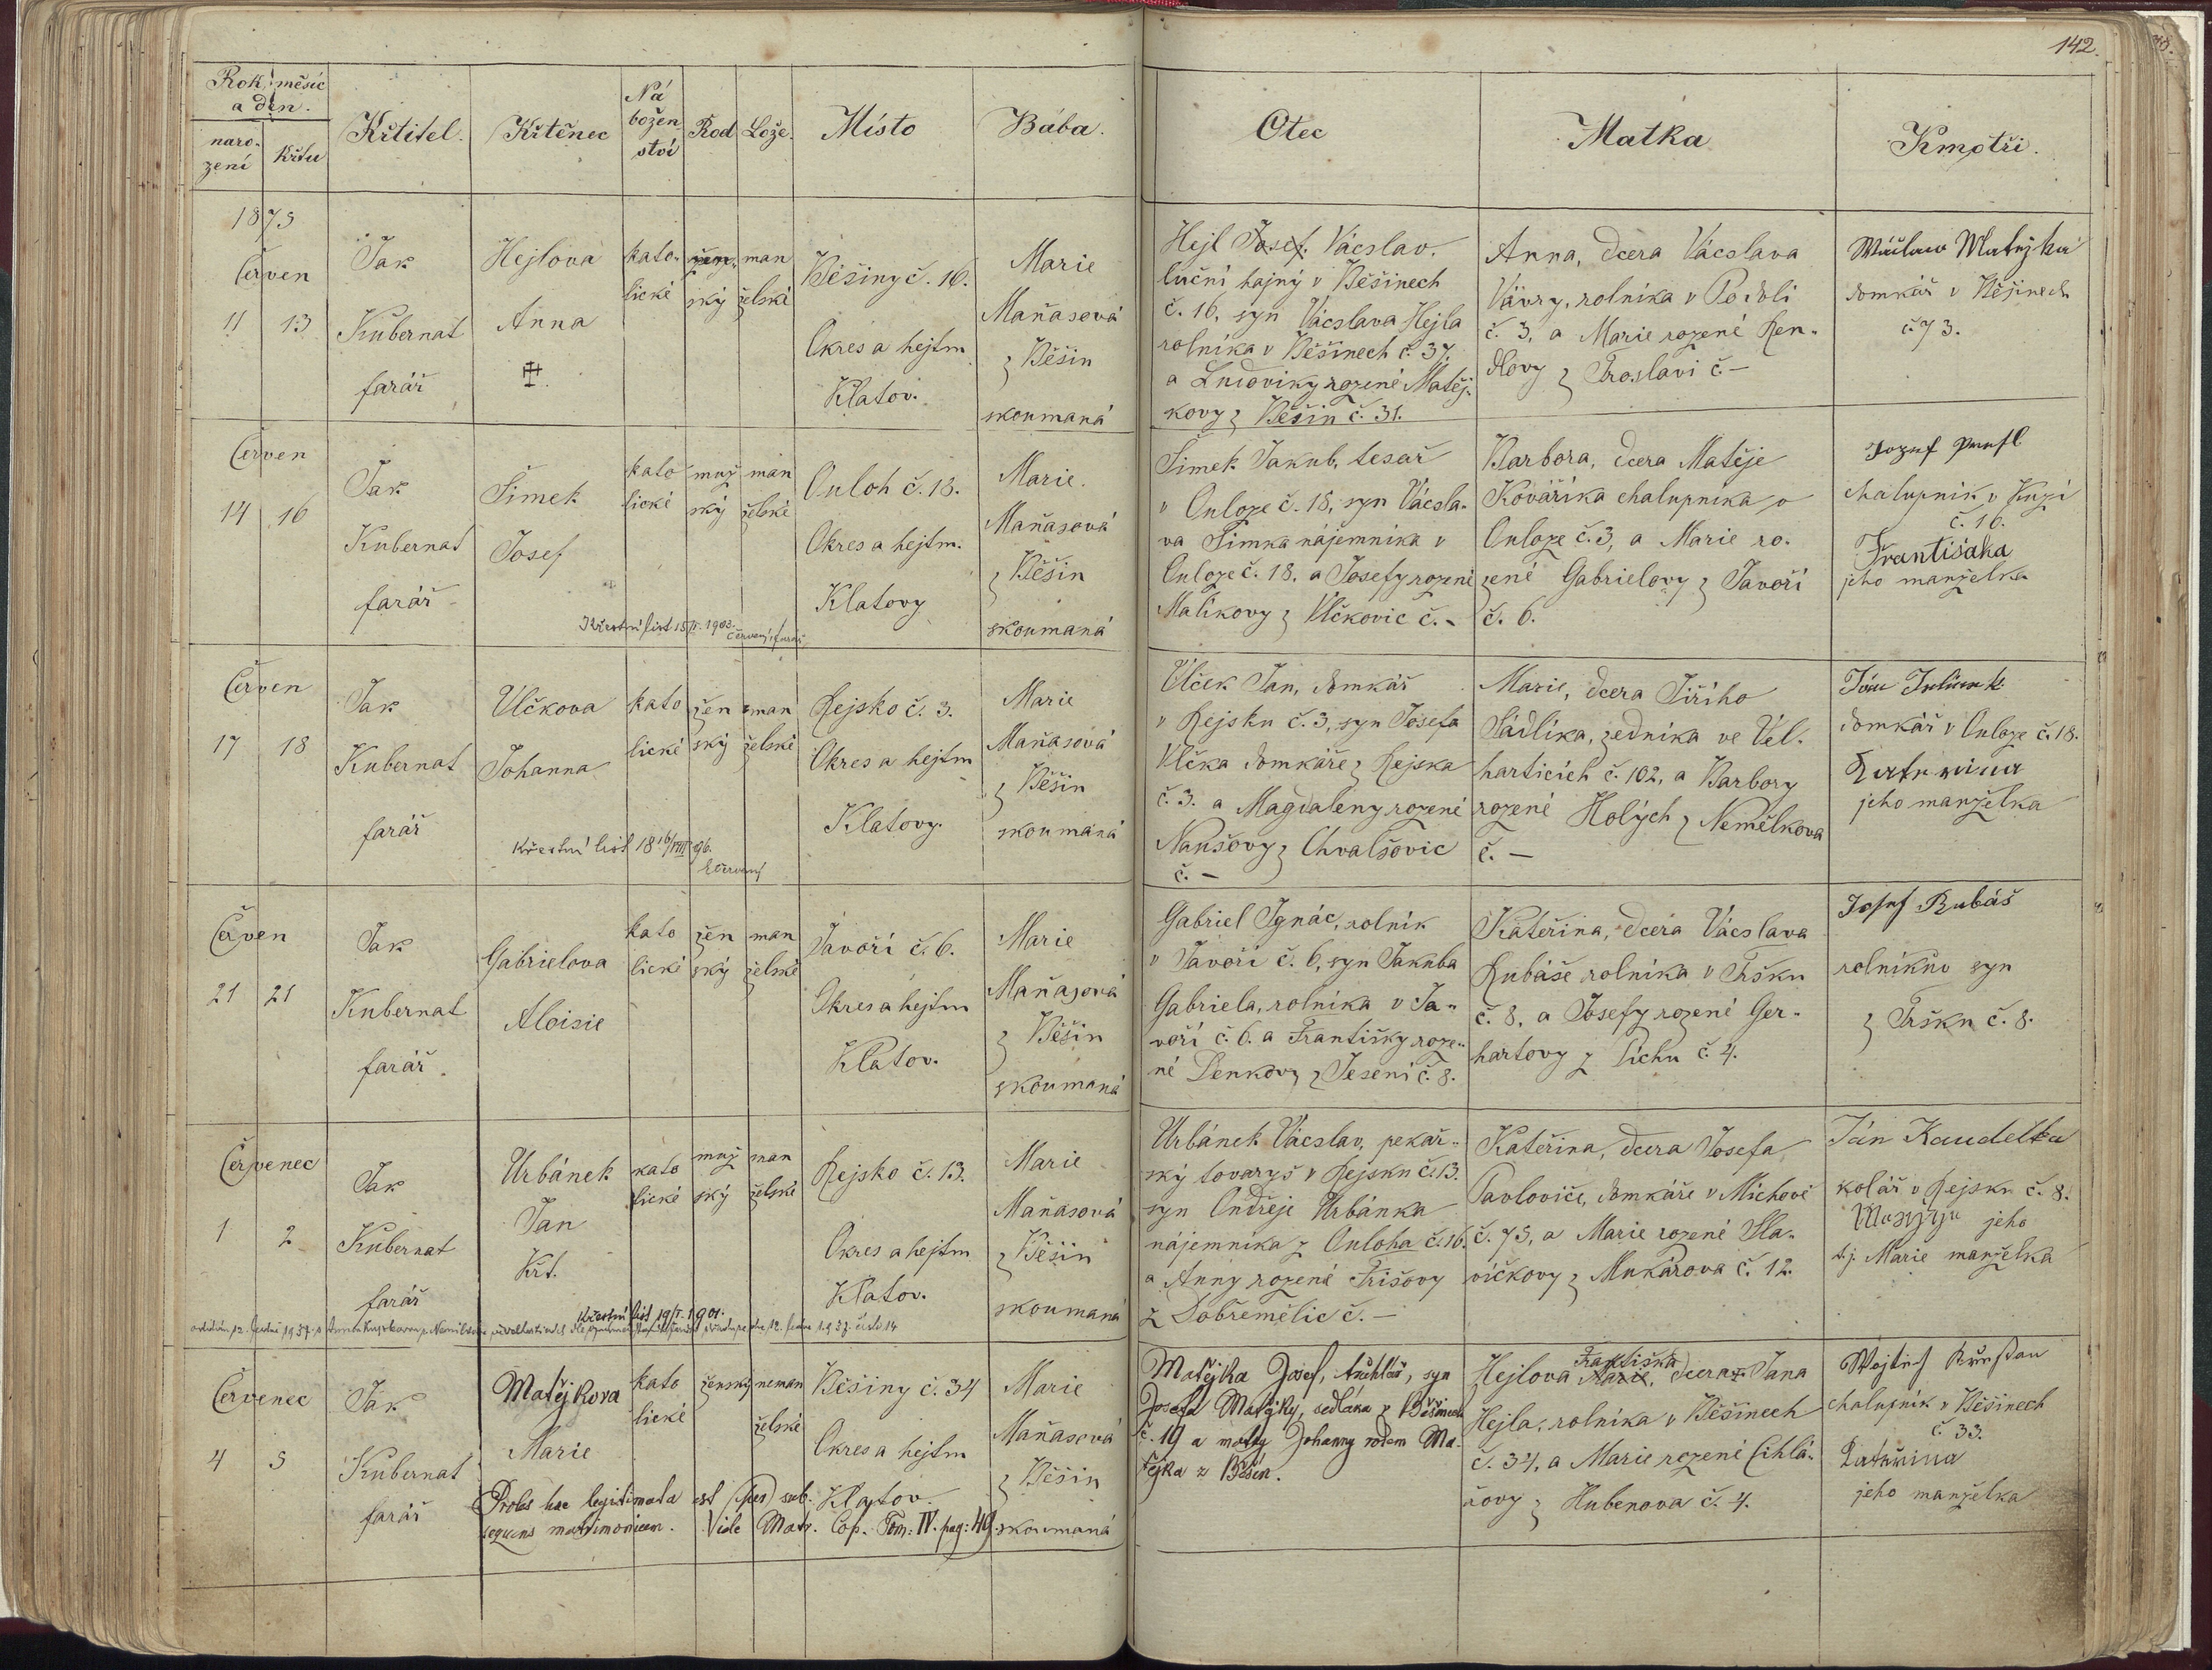 142.
Rok, měsíc
a den.
naro-
zení
křtu
Křtitel.
Křtěnec
Ná
božen
ství
Rod
Lože.
Místo
Bába.
Otec
Matka
Kmotři.
1875
Červen
11 13
Jak
Kubernat
farář
Hejlova
Anna
kato-
lické
žen-
ský
man
želské
Běšiny č. 16.
Okres a hejtm
Klatov.
Marie
Maňasová
z Běšin
skoumaná
Hejl Josef. Vácslav.
luční hajný v Běšinech
č. 16, syn Vácslava Hejla
rolníka v Běšinech č. 37.
a Ludoviky rozené Matěj-
kovy z Běšin č. 31.
Anna, dcera Vácslava
Vávry, rolníka v Podolí
č. 3, a Marie rozené Ren-
dlovy z Broslavi č. –
Wáclaw Matějka
domkář v Běšinech
č. 73.
Červen
14 16
Jak
Kubernat
farář
Šimek
Josef
kato
lické
muž
ský
man
želské
Ouloh č. 18.
Okres a hejtm.
Klatovy
Marie.
Maňasová
z Běšin
skoumaná
Křestní list 15/II. 1903.
Červený farář
Šimek Jakub, tesař
v Ouloze č. 18, syn Vácsla-
va Šimka nájemníka v
Ouloze č. 18. a Josefy rozené
Malíkovy z Vlčkovic č. -
Barbora, dcera Matěje
Kováříka chalupníka v
Ouloze č. 3, a Marie ro-
zené Gabrielovy z Javoří
č. 6.
Jozef
chalupník v Kuzí
č. 16.
Františaka
jeho manželka
Červen
17 18
Jak
Kubernat
farář
Vlčkova
Johanna
kato
lické
žen
ský
man
želské
Rejsko č. 3.
Okres a hejtm
Klatovy.
Marie
Maňasová
z Běšin
skoumaná
Křestní list 18 16/VIII 96.
Červený
Vlček Jan, domkář
v Rejsku č. 3, syn Josefa
Vlčka domkáře z Rejska
č. 3. a Magdaleny rozené
Naušovy z Chvalšovic
č. –
Marie, dcera Jiřího
Sádlíka, zedníka ve Vel-
harticích č. 102, a Barbory
rozené Holých z Nemělkova
č. –
Jan
domkář v Ouloze č. 18.
Katerina
jeho manželka
Červen
21 21
Jak
Kubernat
farář.
Gabrielova
Aloisie
kato
lické
žen
ský
man
želské
Javoří č. 6.
Okres a hejtm
Klatov.
Marie
Maňasová
z Běšin
skoumaná
Gabriel Ignác, rolník
v Javoří č. 6, syn Jakuba
Gabriela, rolníka v Ja-
voří č. 6. a Františky roze-
né Denkovy z Jesení č. 8.
Kateřina, dcera Vácslava
Rubáše rolníka v Tršku
č. 8, a Josefy rozené Ger-
hartovy z Píchu č. 4.
Josef Rubáš
rolníkův syn
z Tršku č. 8.
Červenec
1 2
Jak
Kubernat
farář
Urbánek
Jan
Křt.
kato
lické
muž
ský
man
želské
Rejsko č. 13.
Okres a hejtm
Klatov.
Marie
Maňasová
z Běšin
skoumaná
Křestní list 19/I. 1901.
Urbánek Vácslav, pekař-
ský tovaryš v Rejsku č. 13.
syn Ondřeje Urbánka
nájemníka z Ouloha č. 16.
a Anny rozené Frišovy
z Dobřemělic č. –
Kateřina, dcera Josefa
Pavloviče, domkáře v Míchově
č. 75, a Marie rozené Sla-
víčkovy z Mukařova č. 12.
Ján Kaudelka
kolář v Rejsku č. 8.
jeho
t. j. Marie manželka
Červenec
4 5
Jak
Kubernat
farář
Matějkova
Marie
kato
lické
ženský
neman
želské
Běšiny č. 34
Okres a hejtm
Klatov.
Marie
Maňasová
z Běšin
skoumaná
Proles haec legitimata est per sub-
sequens matrimonium. Vide Matr. Cop. Tom: IV. pag: 49.
Matějka Josef, truhlář, syn
Josefa Matějky, sedláka z Běšinech
č. 19 a matky Johanny rodem Ma-
tějka z Běšin.
Františka
Hejlova Marie, dcera Jana
Hejla, rolníka v Běšinech
č. 34, a Marie rozené Cihlá-
řovy z Hubenova č. 4.
Wojtěch
chalupník v Běšinech
č. 33.
Kateřina
jeho manželka